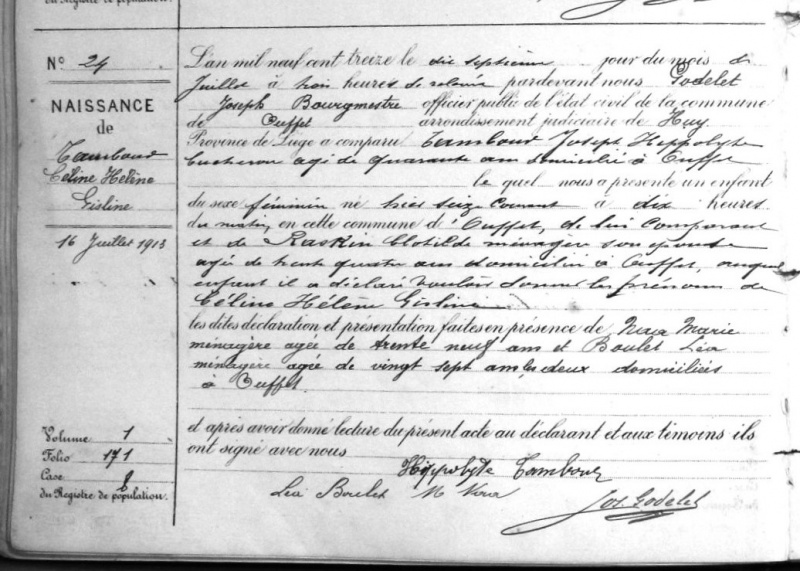 du Registre de population.
N° 24
NAISSANCE
de
Tambour
Céline Hélène
Gisline
16 Juillet 1913
L'an mil neuf cent treize le dix septième jour du mois de
Juillet à trois heures de relevée pardevant nous Godelet
Joseph Bourgmestre officier public de l'état civil de la commune
de Ouffet arrondissement judiciaire de Huy
Province de Liège a comparu Tambour Joseph Hippolyte
bucheron agé de quarante ans domicilié à Ouffet
le quel nous a présenté un enfant
du sexe féminin né hier seize courant à dix heures
du matin, en cette commune d'Ouffet, de lui comparant
et de Raskin Clotilde ménagère son épouse
agée de trente quatre ans domiciliée à Ouffet, auquel
enfant il a déclaré vouloir donner les prénoms de
Céline Hélène Gisline
les dites déclaration et présentation faites en présence de Marie
ménagère agée de trente neuf ans et Boulet Léa
ménagère agée de vingt sept ans les deux domiciliées
à Ouffet.
et après avoir donné lecture du présent acte au déclarant et aux témoins ils
ont signé avec nous
Hippolyte Tambour
Léa Boulet M
Jos. Godelet
Volume 1
Folio 171
Case 8
du Registre de population.